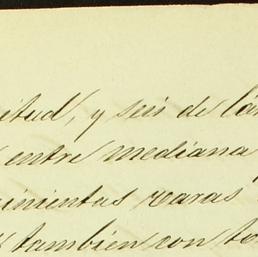 itud, y seis de la
entre mediana
inientas varas
tambien con to